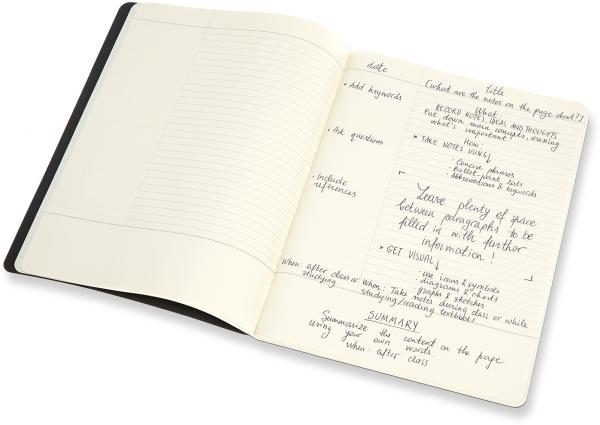 date
title
[what are the notes on the page about?]
• Add keywords
• Ask questions
• Include
references
When: after class or
studying
What:
RECORD NOTES, IDEAS AND THOUGHTS
Put down main concepts, missing
what's important
How:
* TAKE NOTES USING↓
• Concise phrases
• Bullet-point lists
• Abbreviations & keywords
Leave plenty of space
between paragraphs to be
filled in with further
information!
* GET VISUAL↓
• use icons & symbols
• diagrams & charts
• graphs & sketches
When: Take notes during class or while
studying/reading textbooks.
SUMMARY
Summarize the content on the page
using your own words.
When: after class